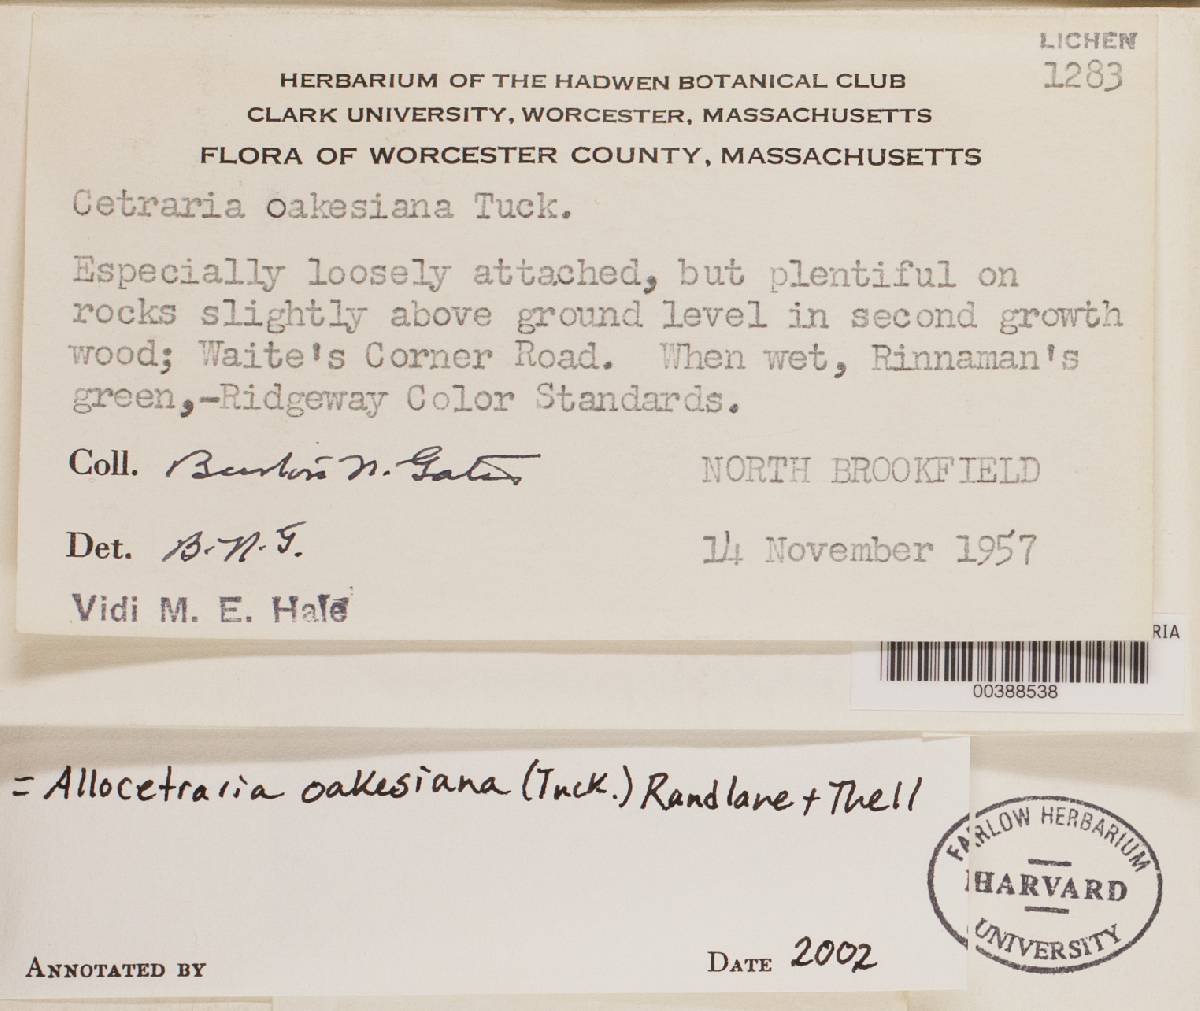 LICHEN
1283
HERBARIUM OF THE HADWEN BOTANICAL CLUB
CLARK UNIVERSITY, WORCESTER, MASSACHUSETTS
FLORA OF WORCESTER COUNTY, MASSACHUSETTS
Cetraria oakesiana Tuck.
Especially loosely attached, but plentiful on
rocks slightly above ground level in second growth
wood; Waite's Corner Road. When wet, Rinnaman's
green,-Ridgeway Color Standards.
Coll. Burton N. Gates
NORTH BROOKFIELD
Det. B. N. G.
14 November 1957
Vidi M. E. Hale
RIA
00388538
= Allocetraria oakesiana (Tuck.) Randlane + Thell
FARLOW HERBARIUM
HARVARD
UNIVERSITY
ANNOTATED BY
DATE 2002